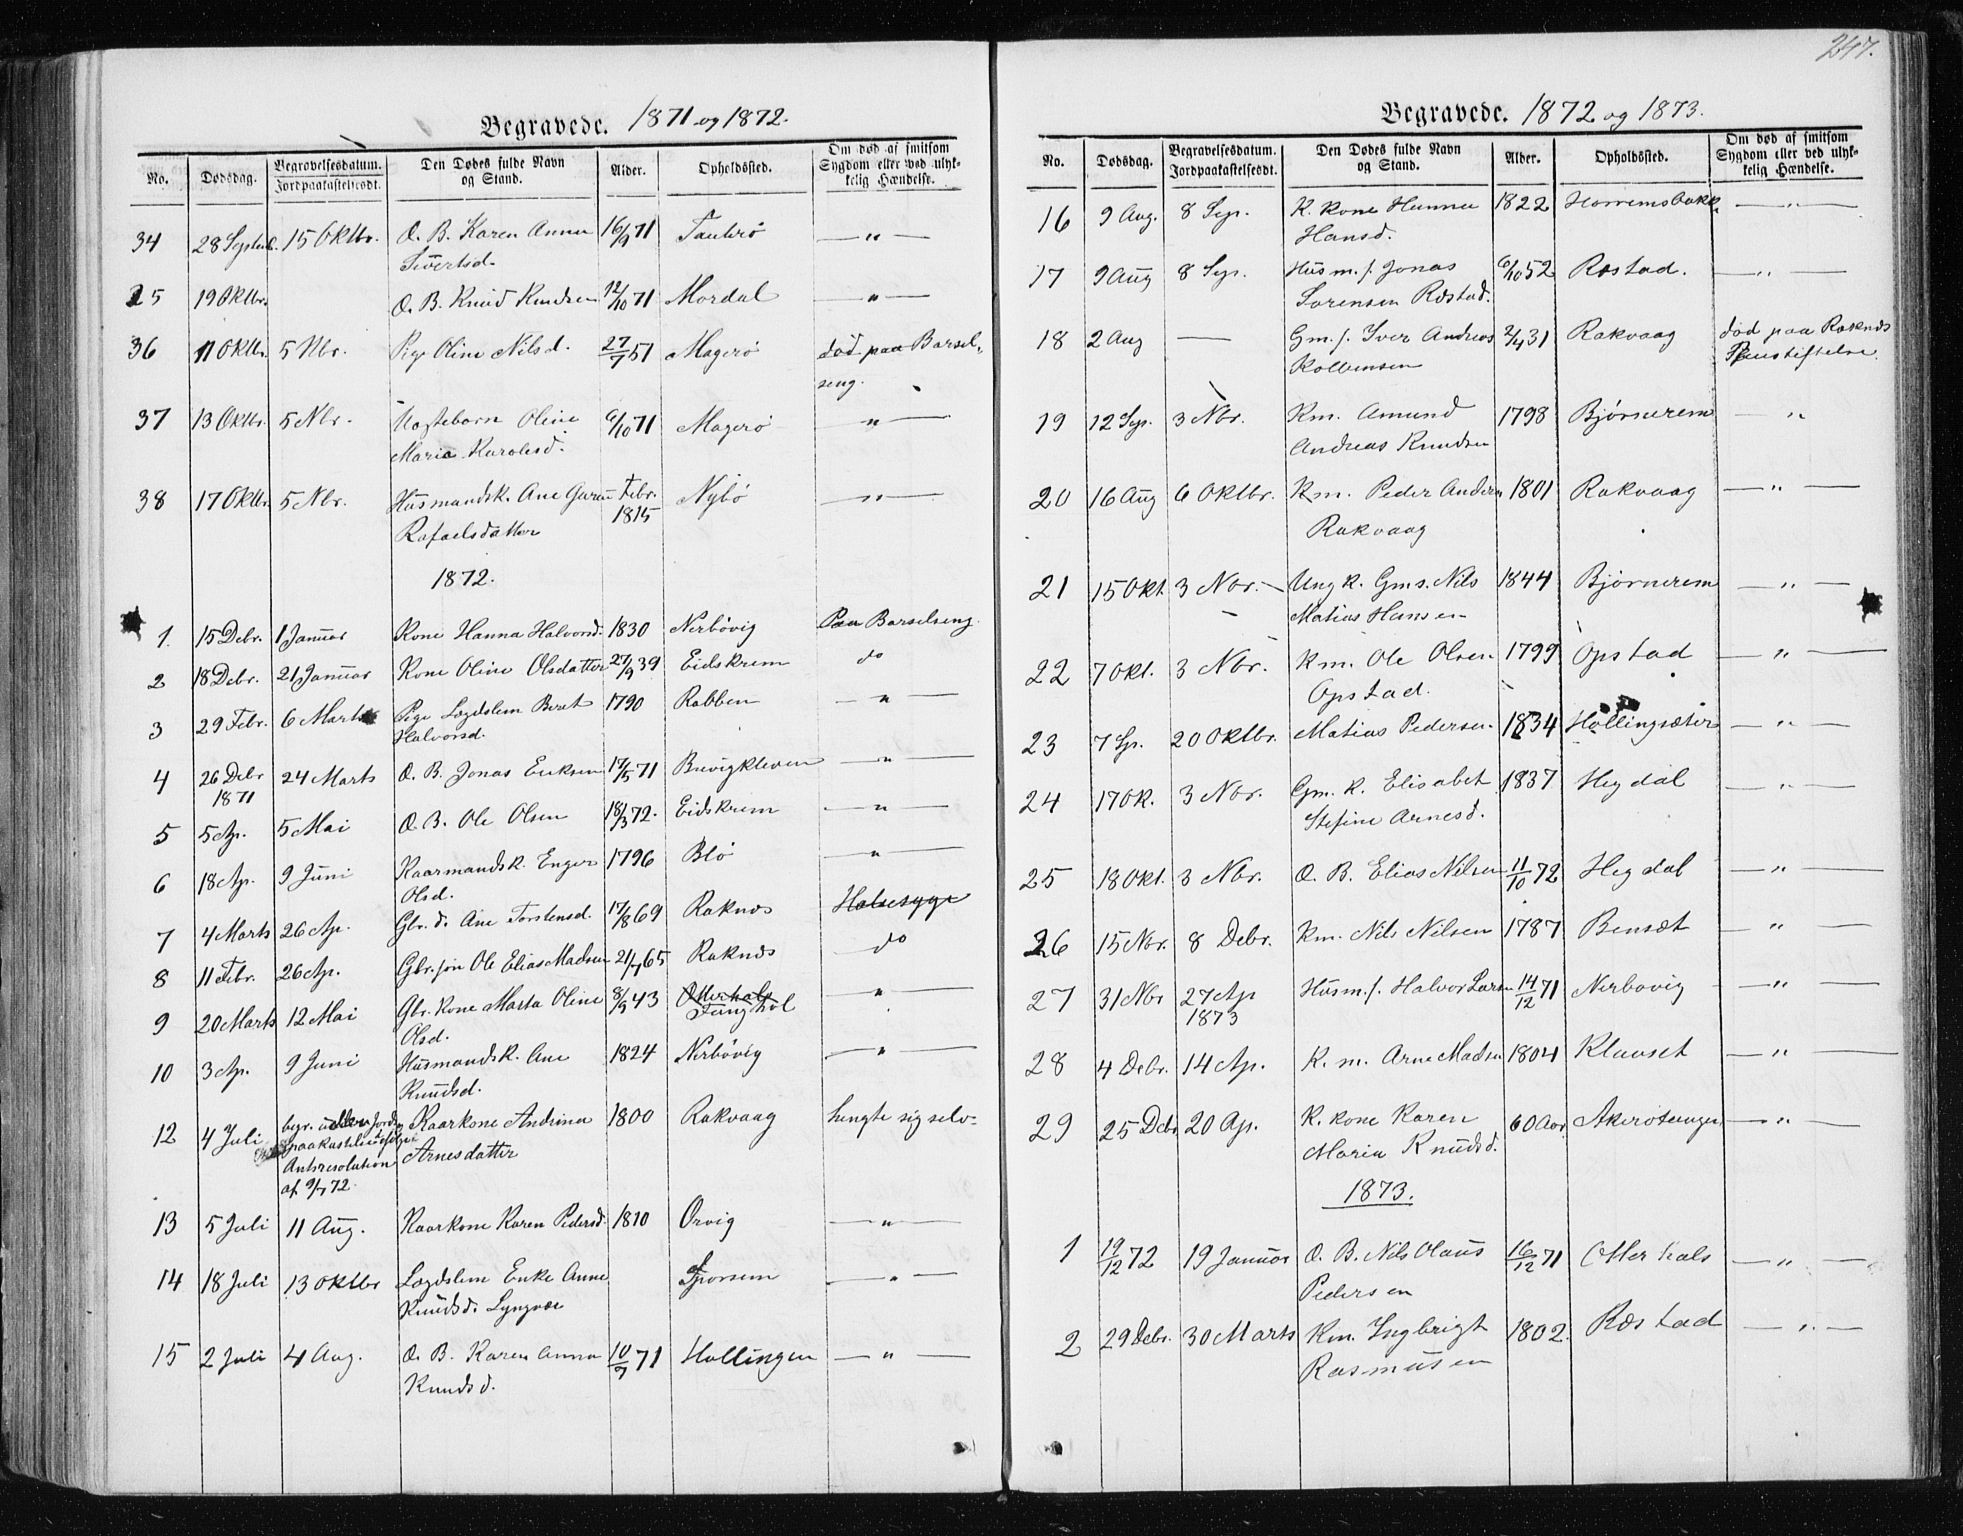 247.
Begravede. 1871 og 1872.
No. Dødsdag. Begravelsesdatum. Jordpaakastelsesdt. Den Dødes fulde Navn og Stand. Alder. Opholdssted. Om død af smitsom Sygdom eller ved ulykkelig Hændelse.
34 28 Septbr. 15 Oktbr. O. B. Karen Anna 16/9 71 Tauterö — " —
Sivertsd.
35 19 Oktbr. O. B. Knud Knudsen 12/10 71 Mordal — " —
36 11 Oktbr. 5 Nbr. Pige Oline Nilsd. 27/7 51 Magerö död paa Barsel-
seng.
37 13 Oktbr. 5 Nbr. Uægteborn Oline 6/10 71 Magerö — " —
Maria Karolesd.
38 17 Oktbr. 5 Nbr. Husmandsk. Ane Guren Febr. Nybö — " —
Rafaelsdatter 1815
1872.
1 15 Debr. 1 Januar Kone Hanna Halvorsd. 1830 Nerbövig Paa Barselseng.
2 18 Debr. 21 Januar Kone Oline Olsdatter 27/9 39 Eidskrem do
3 29 Febr. 6 Marts Pige Lægdslem Beret 1790 Rabben — " —
Halvorsd.
4 26 Debr 24 Marts O. B. Jonas Eriksen 17/5 71 Buvigkleven — " —
1871
5 5 Ap. 5 Mai O. B. Ole Olsen 18/3 72. Eidskrem — " —
6 18 Ap. 9 Juni Kaarmandsk. Enger 1796 Blö — " —
Olsd.
7 4 Marts 26 Ap. Gbr. d. Ane Torstensd. 17/8 69 Raknæs Halsesyge
8 11 Febr. 26 Ap. Gbr. søn Ole Elias Madsen 21/7 65 Raknæs do
9 20 Marts 12 Mai Gbr. Kone Marta Oline 8/9 43 Otterhals — " —
Olsd. Tunghol
10 3 Ap. 9 Juni Husmandsk. Ane 1824 Nerbövig — " —
Knudsd.
12 4 Juli begr. uden Jords- Kaarkone Andrina 1800 Rakvaag hengte sig selv.
paakastelse ifølge Arnesdatter
Amtsresolution
af 9/7 72.
13 5 Juli 11 Aug. Kaarkone Karen Pedersd. 1810 Orvig — " —
14 18 Juli 13 Oktbr Lægdslem Enke Anne Sporsem — " —
Knudsd. Lyngvær
15 2 Juli 4 Aug. O. B. Karen Anna 10/7 71 Hollingen — " —
Knudsd.
Begravede. 1872 og 1873.
No. Dødsdag. Begravelsesdatum. Jordpaakastelsesdt. Den Dødes fulde Navn og Stand. Alder. Opholdssted. Om død af smitsom Sygdom eller ved ulykkelig Hændelse.
16 9 Aug. 8 Sep. K. kone Hanna 1822 Horremsbakk — " —
Hansd.
17 9 Aug 8 Sep. Husm. s. Jonas 6/10 52 Ræstad. — " —
Sorensen Ræstad.
18 2 Aug — Gm. s. Iver Andreas 2/4 31 Rakvaag död paa Raknæs
Kolbensen Pleiestiftelse.
19 12 Sep. 3 Nbr. Km. Amund 1798 Bjørnerem — "
Andreas Knudsen
20 16 Aug 6 Oktbr. Km. Peder Anders 1801 Rakvaag — " —
Rakvaag
21 15 Okt 3 Nbr. — Ung k. Gms. Nils 1844 Bjørnerem — " —
Matias Hansen
22 7 Okt. 3 Nbr. Km. Ole Olsen 1799 Opstad — " —
Opstad.
23 7 Sp. 20 Oktbr. Matias Pedersen 1834 Hollingsæter — " —
24 17 Ok. 3 Nbr. Gm. k. Elisabet 1837 Hegdal — " —
Stefine Arnesd.
25 18 Okt. 3 Nbr. O. B. Elias Nilsen 11/10 72 Hegdal — " —
26 15 Nbr. 8 Debr. Km. Nils Nilsen 1787 Bensæt — " —
27 31 Nbr 27 Ap Husm. s. Halvor Larsen 14/12 71 Nerbovig — " —
1873
28 4 Debr. 14 Ap. K. m. Arne Madsen 1804 Klauset — " —
29 25 Debr 20 Ap. K. kone Karen 60 Aar Akerötangen — " —
Maria Knudsd.
1873.
1 19/12 72 19 Januar O. B. Nils Olaus 16/12 71 Otterhals — " —
Pedersen
2 29 Debr. 30 Marts Km. Ingbrigt 1802. Ræstad — " —
Rasmusen